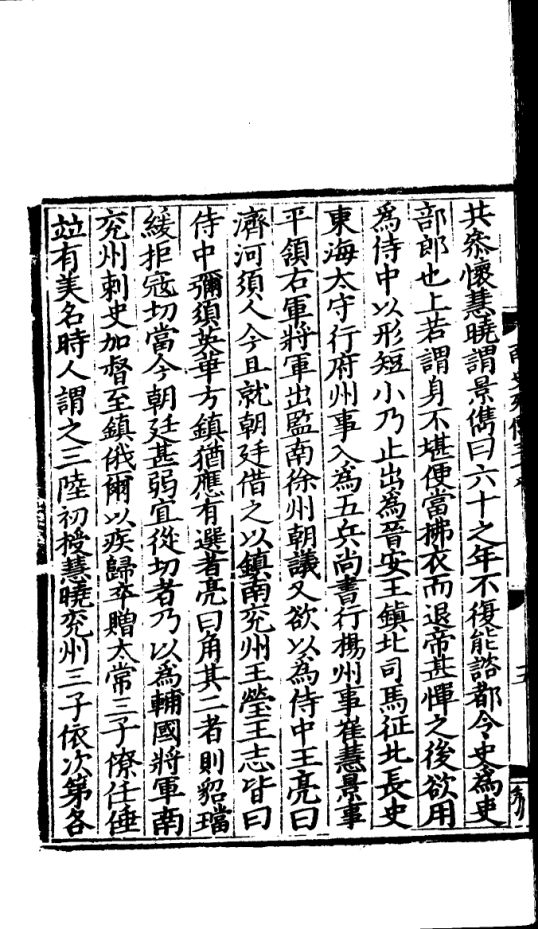 共叅懷慧曉謂景儁曰六十之年不復能諮都令史為吏
部郎也上若謂身不堪便當拂衣而退帝甚憚之後欲用
為侍中以形短小乃止出為晉安王鎮北司馬征北長史
東海太守行府州事入為五兵尚書行楊州事崔慧景事
平領右軍將軍出監南徐州朝議又欲以為侍中王亮曰
濟河須人今且就朝廷借之以鎮南兖州王瑩王志皆曰
侍中彌須英華方鎮猶應有選者亮曰角其二者則貂璫
緩拒寇切當今朝廷甚弱宜從切者乃以為輔國將軍南
兖州刺史加督至鎮俄爾以疾歸卒贈太常三子僚任倕
竝有美名時人謂之三陸初授慧曉兖州三子依次第各